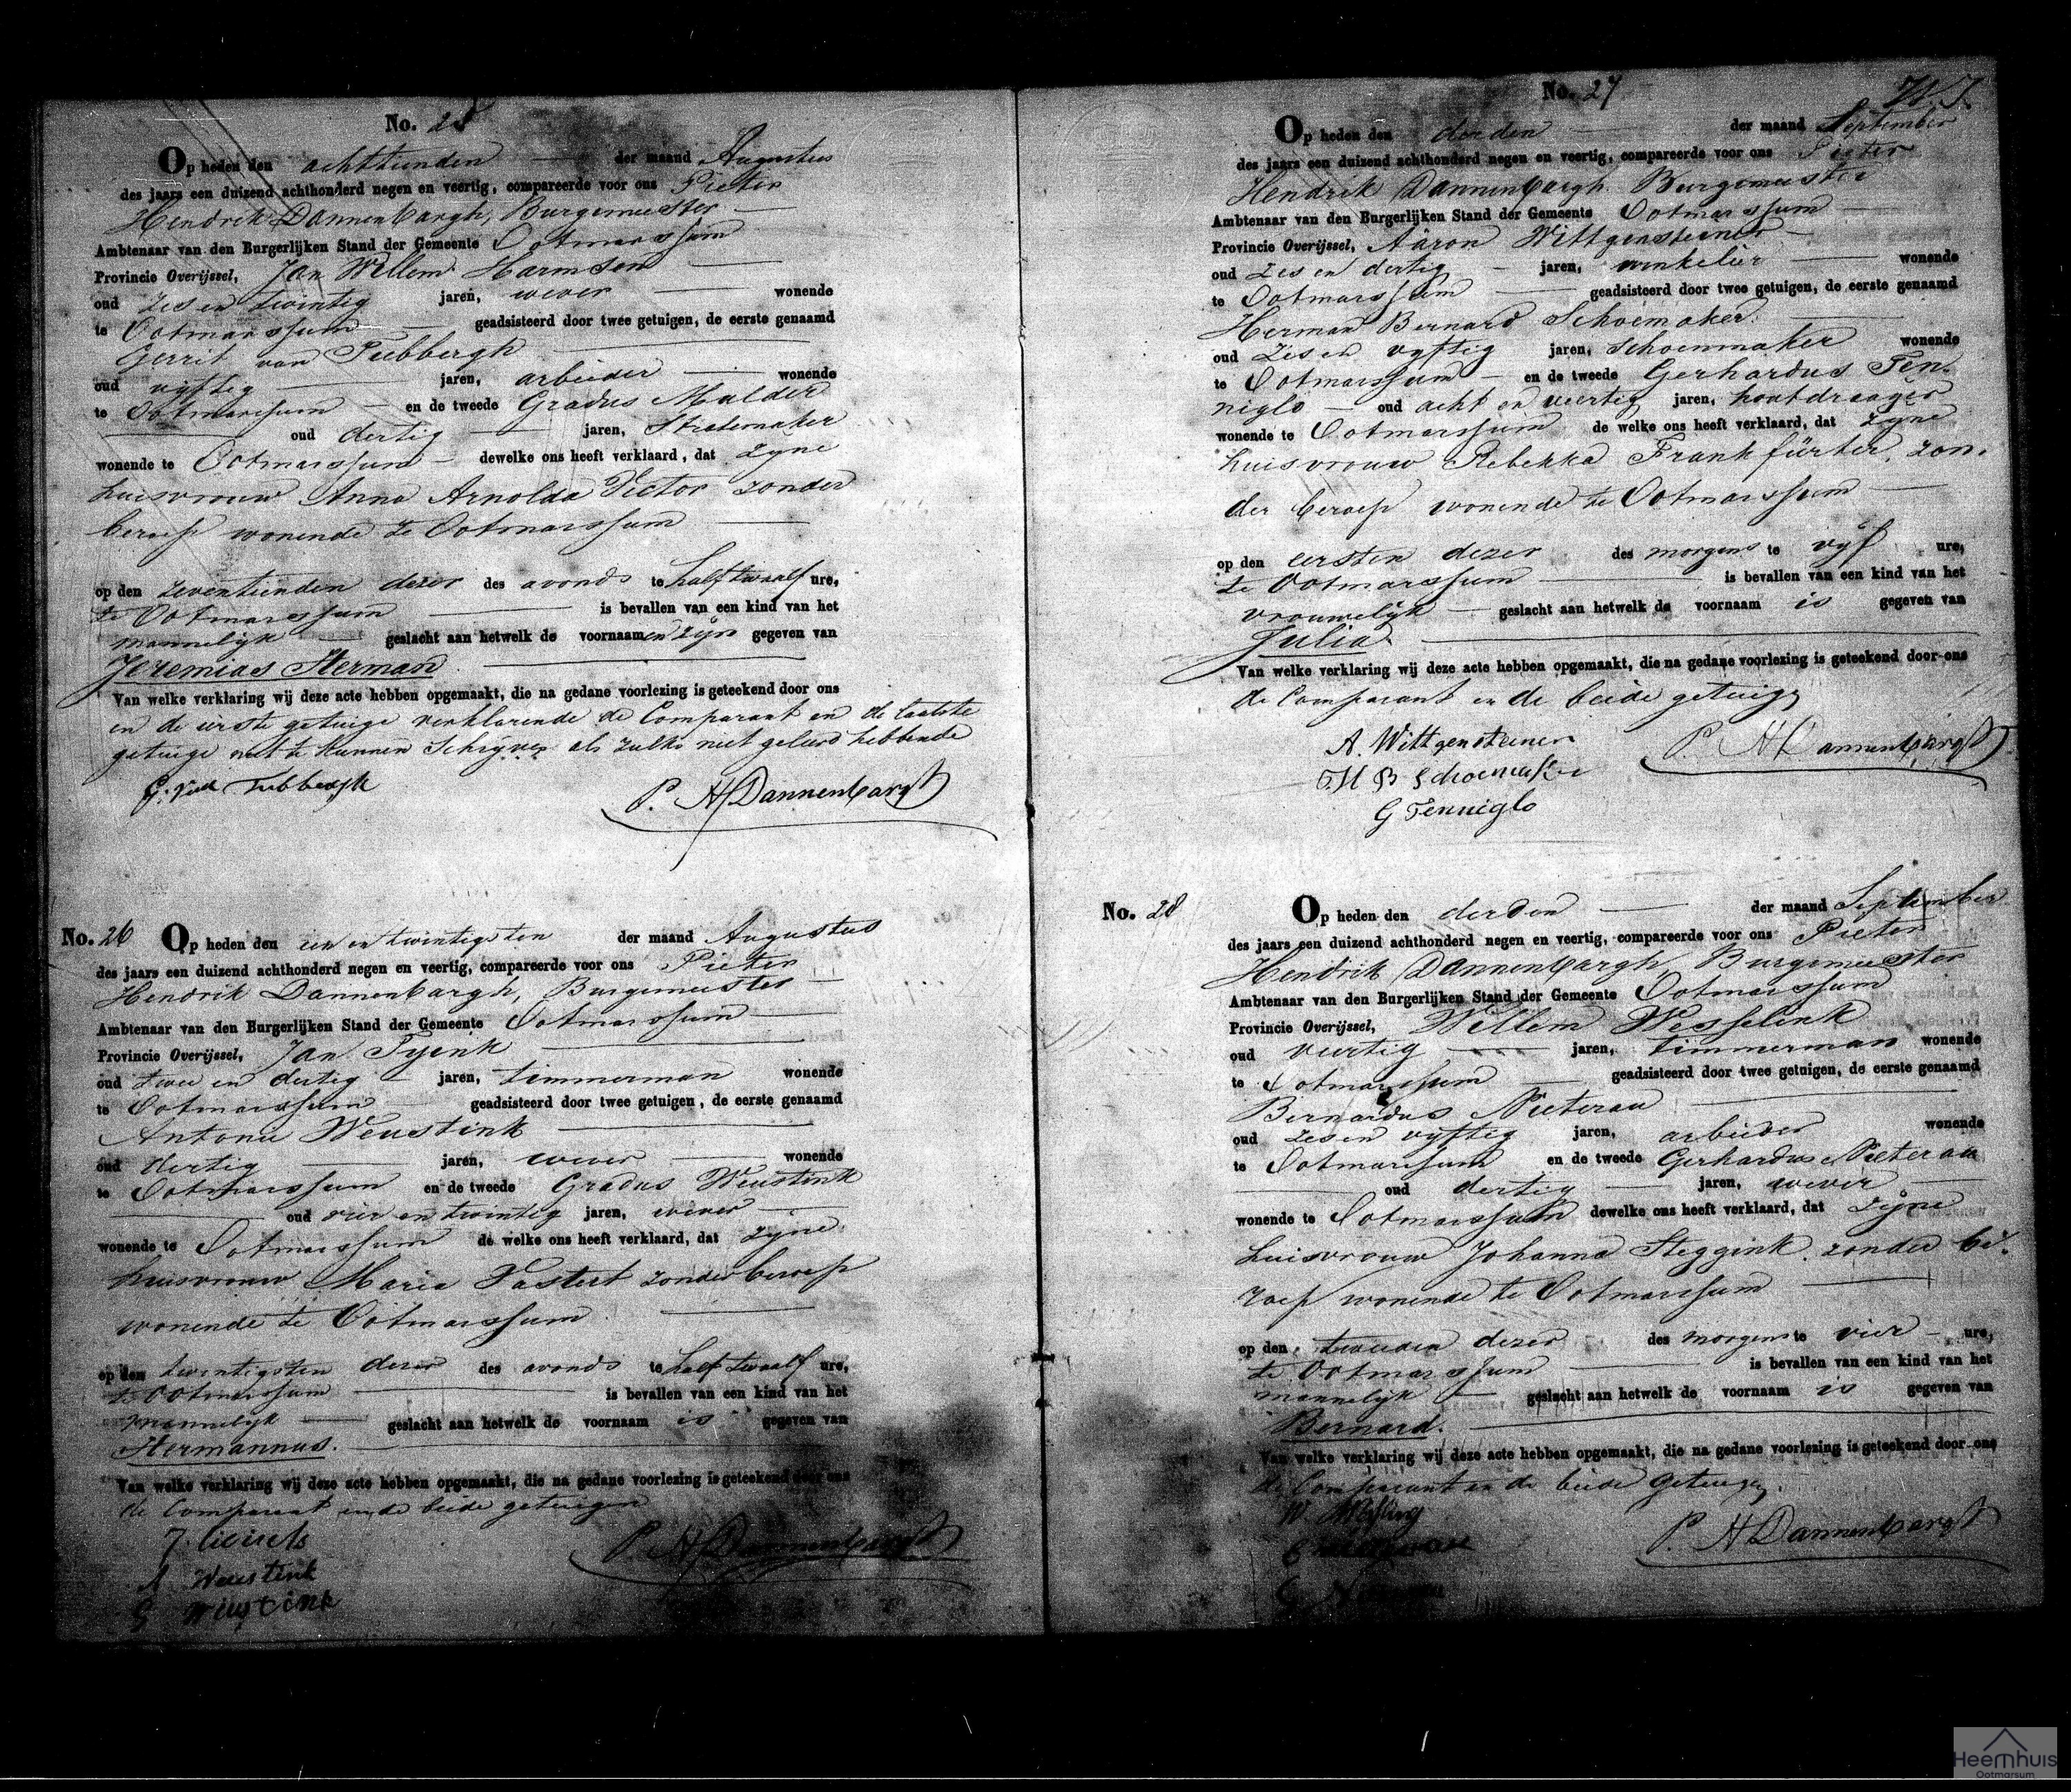 No. 25
Op heden den achttienden der maand Augustus
des jaars een duizend achthonderd negen en veertig, compareerde voor ons Pieter
Hendrik Dannenbargh, Burgemeester
Ambtenaar van den Burgerlijken Stand der Gemeente Ootmarssum
Provincie Overijssel, Jan Willem Harmsen
oud zes en twintig jaren, wever wonende
te Ootmarssum geadsisteerd door twee getuigen, de eerste genaamd
Gerrit van Tubbergh
oud vyftig jaren, arbeider wonende
te Ootmarssum en de tweede Gradus Mulder
oud dertig jaren, Stoelemaker
wonende te Ootmarssum dewelke ons heeft verklaard, dat zyne
huisvrouw Anna Arnolda Victor zonder
beroep wonende te Ootmarssum
op den zeventienden dezer des avonds te half twaalf ure,
te Ootmarssum is bevallen van een kind van het
mannelijk geslacht aan hetwelk de voornaamen zijn gegeven van
Jeremias Herman
Van welke verklaring wij deze acte hebben opgemaakt, die na gedane voorlezing is geteekend door ons
en de eerste getuige verklarende de Comparant en de laatste
getuige niet te kunnen Schryven als zulks niet geleerd hebbende
G. van Tubbergh
P. H Dannenbargh
No. 26 Op heden den een en twintigsten der maand Augustus
des jaars een duizend achthonderd negen en veertig, compareerde voor ons Pieter
Hendrik Dannenbargh, Burgemeester
Ambtenaar van den Burgerlijken Stand der Gemeente Ootmarssum
Provincie Overijssel, Jan Tyink
oud twee en dertig jaren, timmerman wonende
te Ootmarssum geadsisteerd door twee getuigen, de eerste genaamd
Antonie Weustink
oud dertig jaren, wever wonende
te Ootmarssum en de tweede Gradus Weustink
oud vier en twintig jaren, wever
wonende te Ootmarssum de welke ons heeft verklaard, dat zyne
huisvrouw Maria Vastert zonder beroep
wonende te Ootmarssum
op den twintigsten dezer des avonds te half twaalf ure,
te Ootmarssum is bevallen van een kind van het
mannelyk geslacht aan hetwelk de voornaam is gegeven van
Hermannus.
Van welke verklaring wij deze acte hebben opgemaakt, die na gedane voorlezing is geteekend door ons
de Comparant en de beide getuigen
A Weustink
G Weustink
P. H Dannenbargh
No. 27
Op heden den derden der maand September
des jaars een duizend achthonderd negen en veertig, compareerde voor ons Pieter
Hendrik Dannenbargh Burgemeester
Ambtenaar van den Burgerlijken Stand der Gemeente Ootmarssum
Provincie Overijssel, Aäron Wittgensteiner
oud zes en dertig jaren, winkelier wonende
te Ootmarssum geadsisteerd door twee getuigen, de eerste genaamd
Herman Bernard Schoemaker
oud zes en vyftig jaren, Schoenmaker wonende
te Ootmarssum en de tweede Gerhardus Ten-
niglo oud acht en veertig jaren, houtdraager
wonende te Ootmarssum de welke ons heeft verklaard, dat zyne
huisvrouw Rebekka Frankfürter, zon-
der beroep wonende te Ootmarssum
op den eersten dezer des morgens te vyf ure,
te Ootmarssum is bevallen van een kind van het
vrouwelyk geslacht aan hetwelk de voornaam is gegeven van
Julia.
Van welke verklaring wij deze acte hebben opgemaakt, die na gedane voorlezing is geteekend door ons
de Comparant en de beide getuigen
A. Wittgensteiner
H B Schoemaker
G Tenniglo
P. H Dannenbargh
No. 28 Op heden den derden der maand September
des jaars een duizend achthonderd negen en veertig, compareerde voor ons Pieter
Hendrik Dannenbargh, Burgemeester
Ambtenaar van den Burgerlijken Stand der Gemeente Ootmarssum
Provincie Overijssel, Willem Wesselink
oud veertig jaren, timmerman wonende
te Ootmarssum geadsisteerd door twee getuigen, de eerste genaamd
Bernardus Nieterau
oud zes en vyftig jaren, arbeider wonende
te Ootmarssum en de tweede Gerhardus Nieterau
oud dertig jaren, wever
wonende te Ootmarssum dewelke ons heeft verklaard, dat zijne
huisvrouw Johanna Steggink zonder be-
roep wonende te Ootmarssum
op den tweeden dezer des morgens te vier ure,
te Ootmarssum is bevallen van een kind van het
mannelyk geslacht aan hetwelk de voornaam is gegeven van
Bernard.
Van welke verklaring wij deze acte hebben opgemaakt, die na gedane voorlezing is geteekend door ons
de Comparant en de beide getuigen.
P. H Dannenbargh
Heemhuis
Ootmarsum